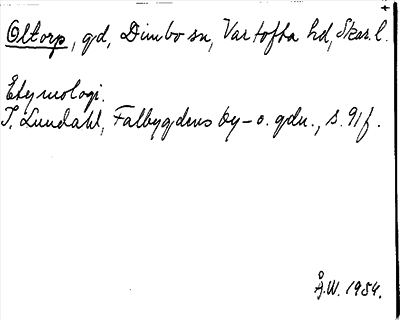 Oltorp, gd, Dimbo sn, Vartofta hd, Skar. l.
Etymologi.
I. Lundahl, Falbygdens by- o. gdn., s. 91 f.
Å.W. 1954.